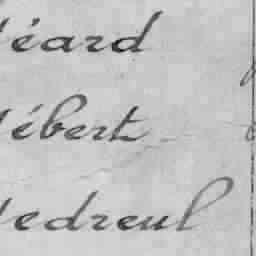 éard
ébert
edreul